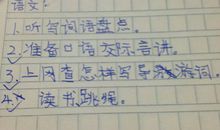 语文:
1.听写词语盘点。
2.准备口语交际音讲。
3.上网查怎样写导游词。
4.读书跳绳。